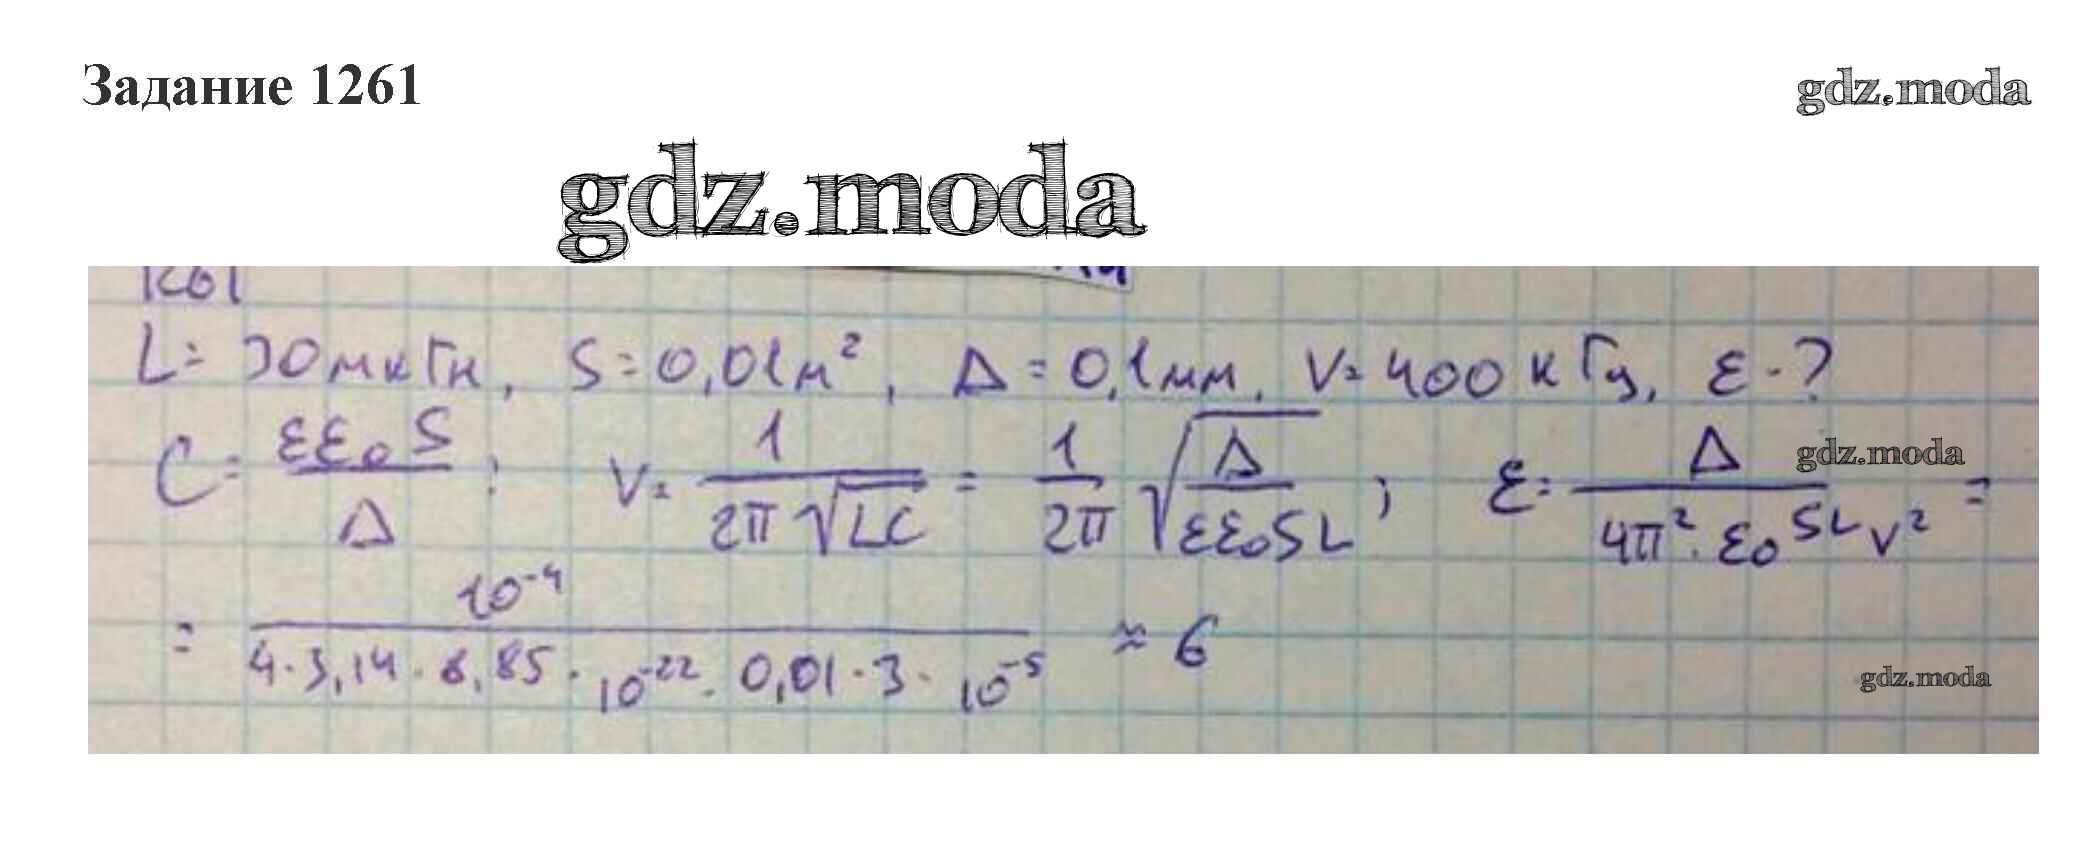 Задание 1261
gdz.moda
gdz.moda
1261
L = 30 мкГн, S = 0,01 м², Δ = 0,1 мм, ν = 400 кГц, ε - ?
C = εε₀S / Δ ; ν = 1 / (2π√LC) = 1 / 2π √(Δ / εε₀SL) ; ε = Δ / (4π² · ε₀ SL ν²) =
gdz.moda
= 10⁻⁴ / (4 · 3,14 · 8,85 · 10⁻²² · 0,01 · 3 · 10⁻⁵) ≈ 6
gdz.moda